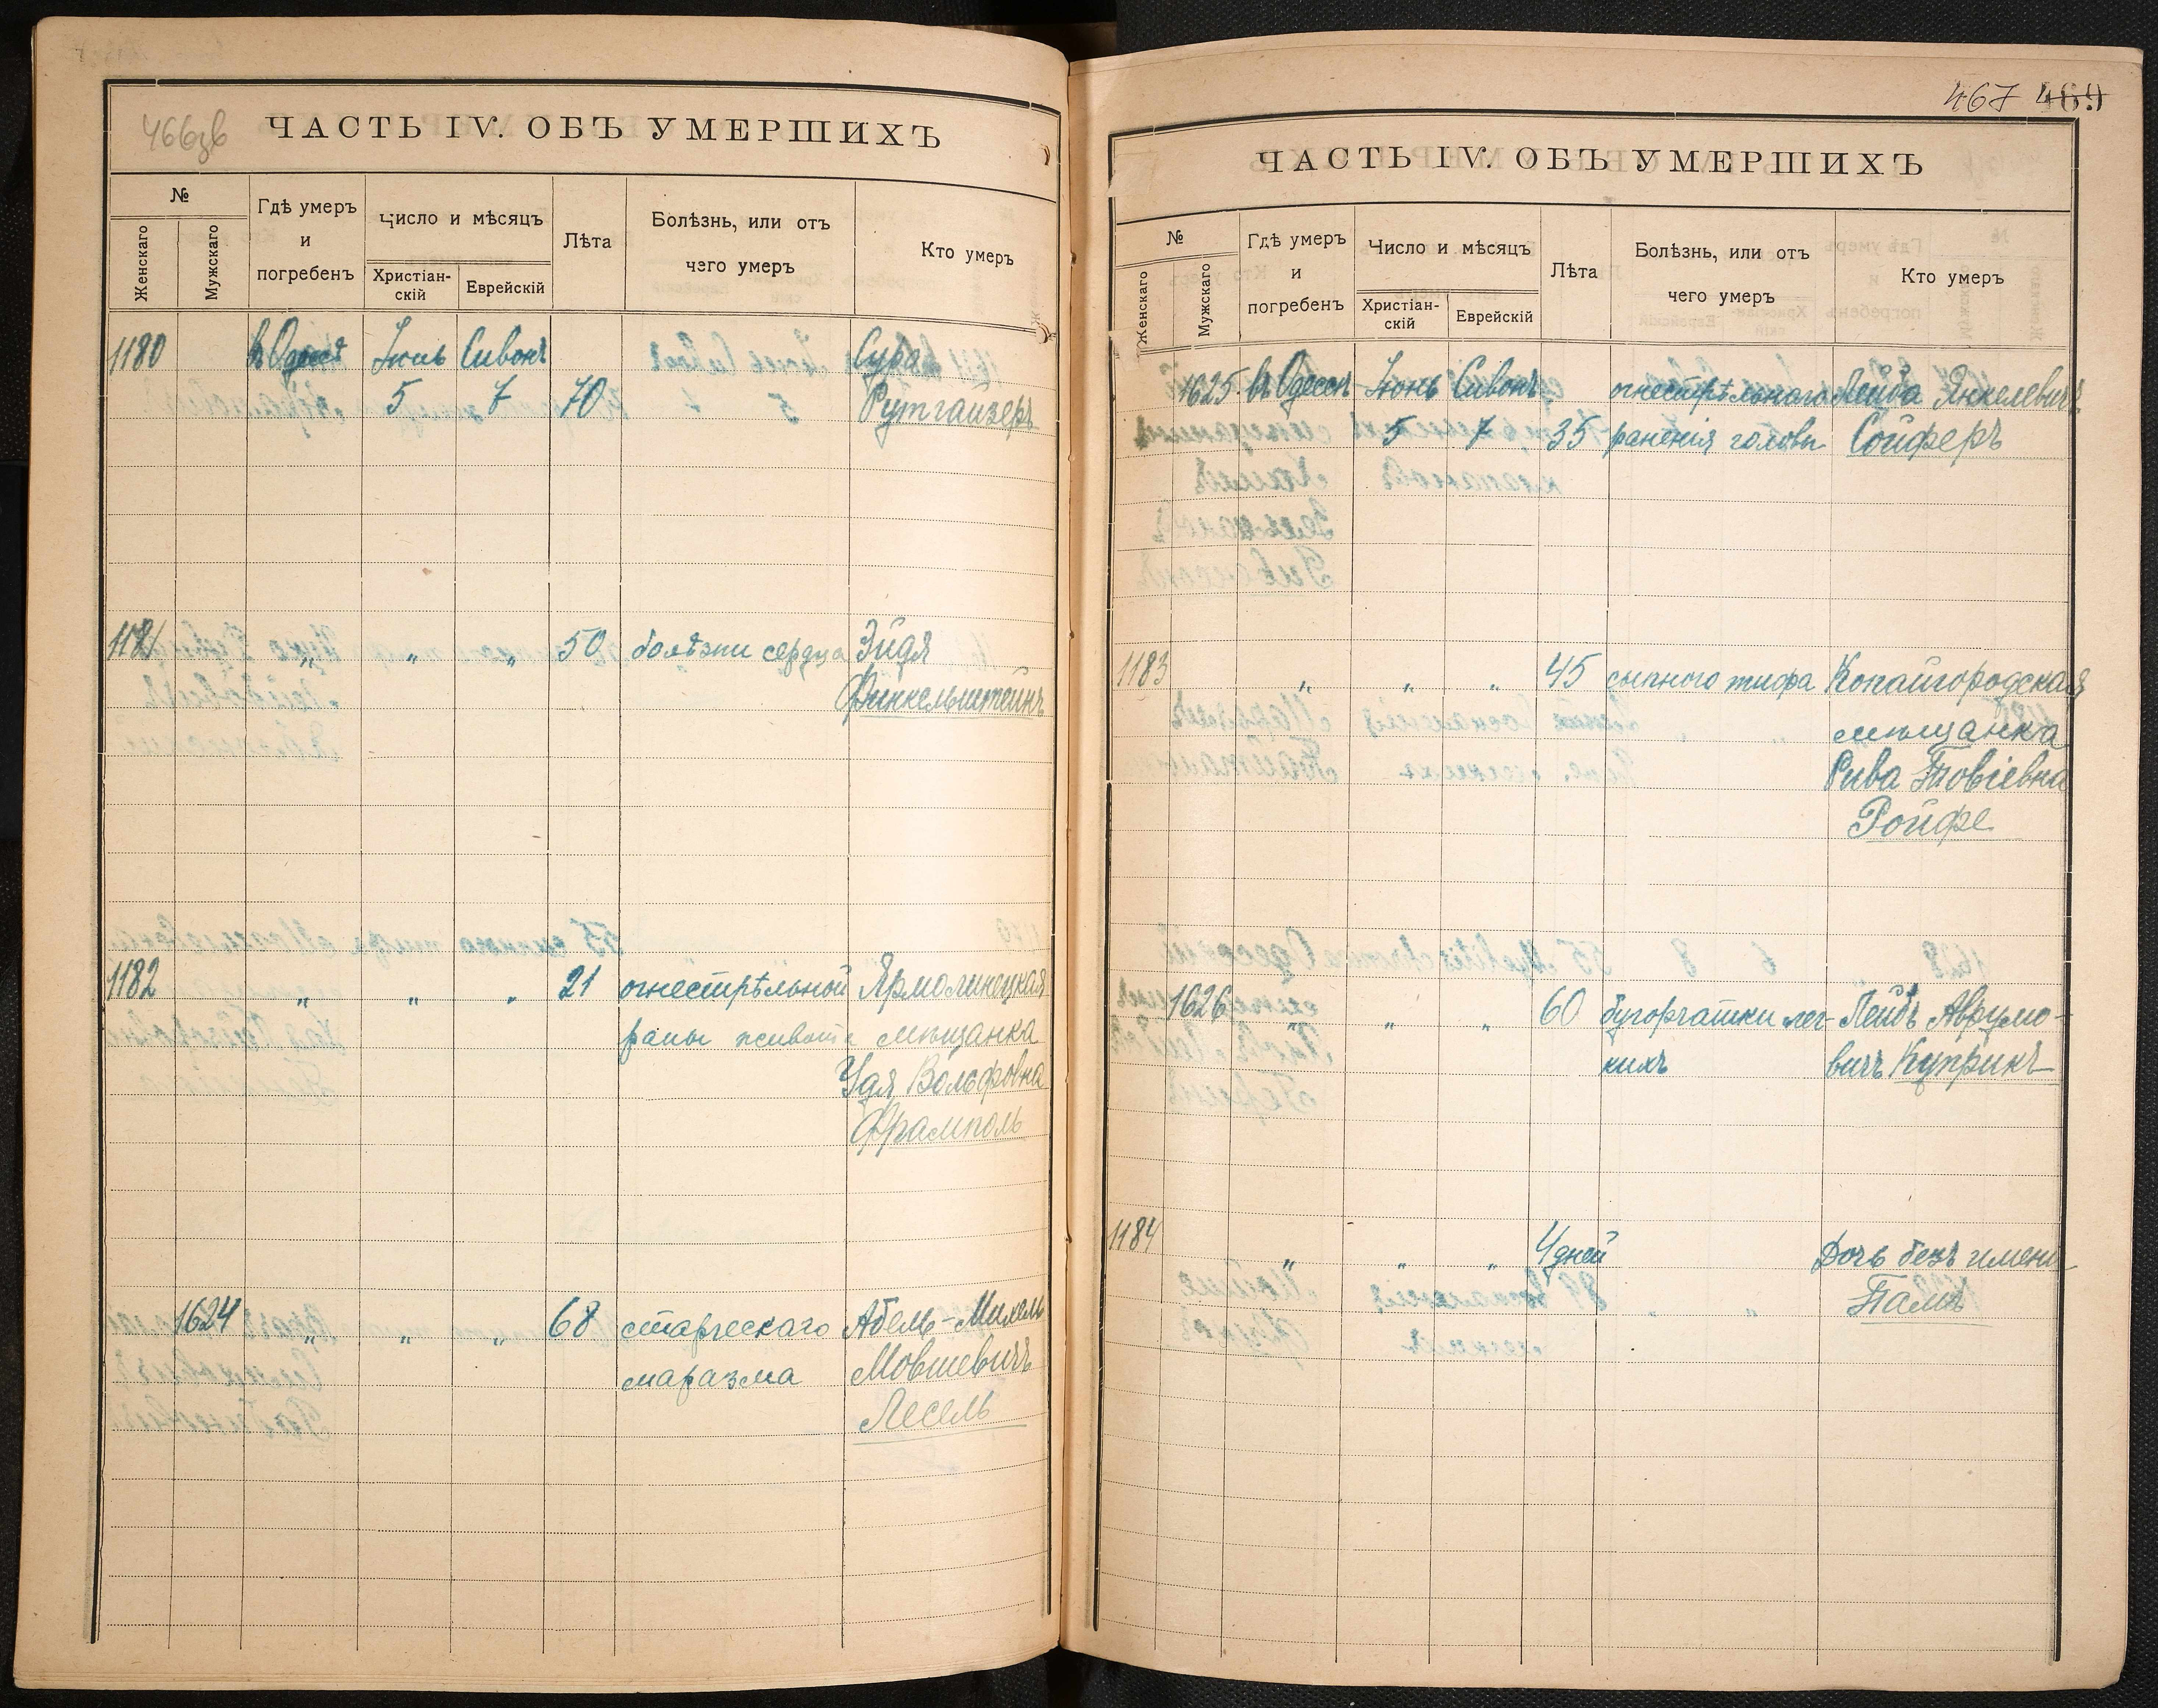 466зв
ЧАСТЬ IV. ОБЪ УМЕРШИХЪ
№
Женскаго
Мужскаго
Гдѣ умеръ
и
погребенъ
Число и мѣсяцъ
Христіан-
скій
Еврейскій
Лѣта
Болѣзнь, или отъ
чего умеръ
Кто умеръ
1180 въ Одессѣ Іюнь Сивонъ Сура
5 7 70 Рутгайзеръ
1181 " " " 50 болѣзни сердца Эйдя
Финкельштейнъ
1182 " " " 21 огнестрѣльной Ярмолинецкая
раны живота мѣщанка
Удя Вольфовна
Фрамполь
1624 " " " 68 старческаго Абель-Михель
маразма Мовшевичъ
Лесель
467 469
ЧАСТЬ IV. ОБЪ УМЕРШИХЪ
№
Женскаго
Мужскаго
Гдѣ умеръ
и
погребенъ
Число и мѣсяцъ
Христіан-
скій
Еврейскій
Лѣта
Болѣзнь, или отъ
чего умеръ
Кто умеръ
1625 въ Одессѣ Іюнь Сивонъ огнестрѣльнаго Лейба Янкелевичъ
5 7 35 раненія головы Сойферъ
1183 " " " 45 сыпного тифа Копайгородская
мѣщанка
Рива Товіевна
Ройфе
1626 " " " 60 бугорчатки лег- Лейбъ Аврумо-
кихъ вичъ Куприкъ
1184 " " " 4 дней Дочь безъ имени
Паметъ